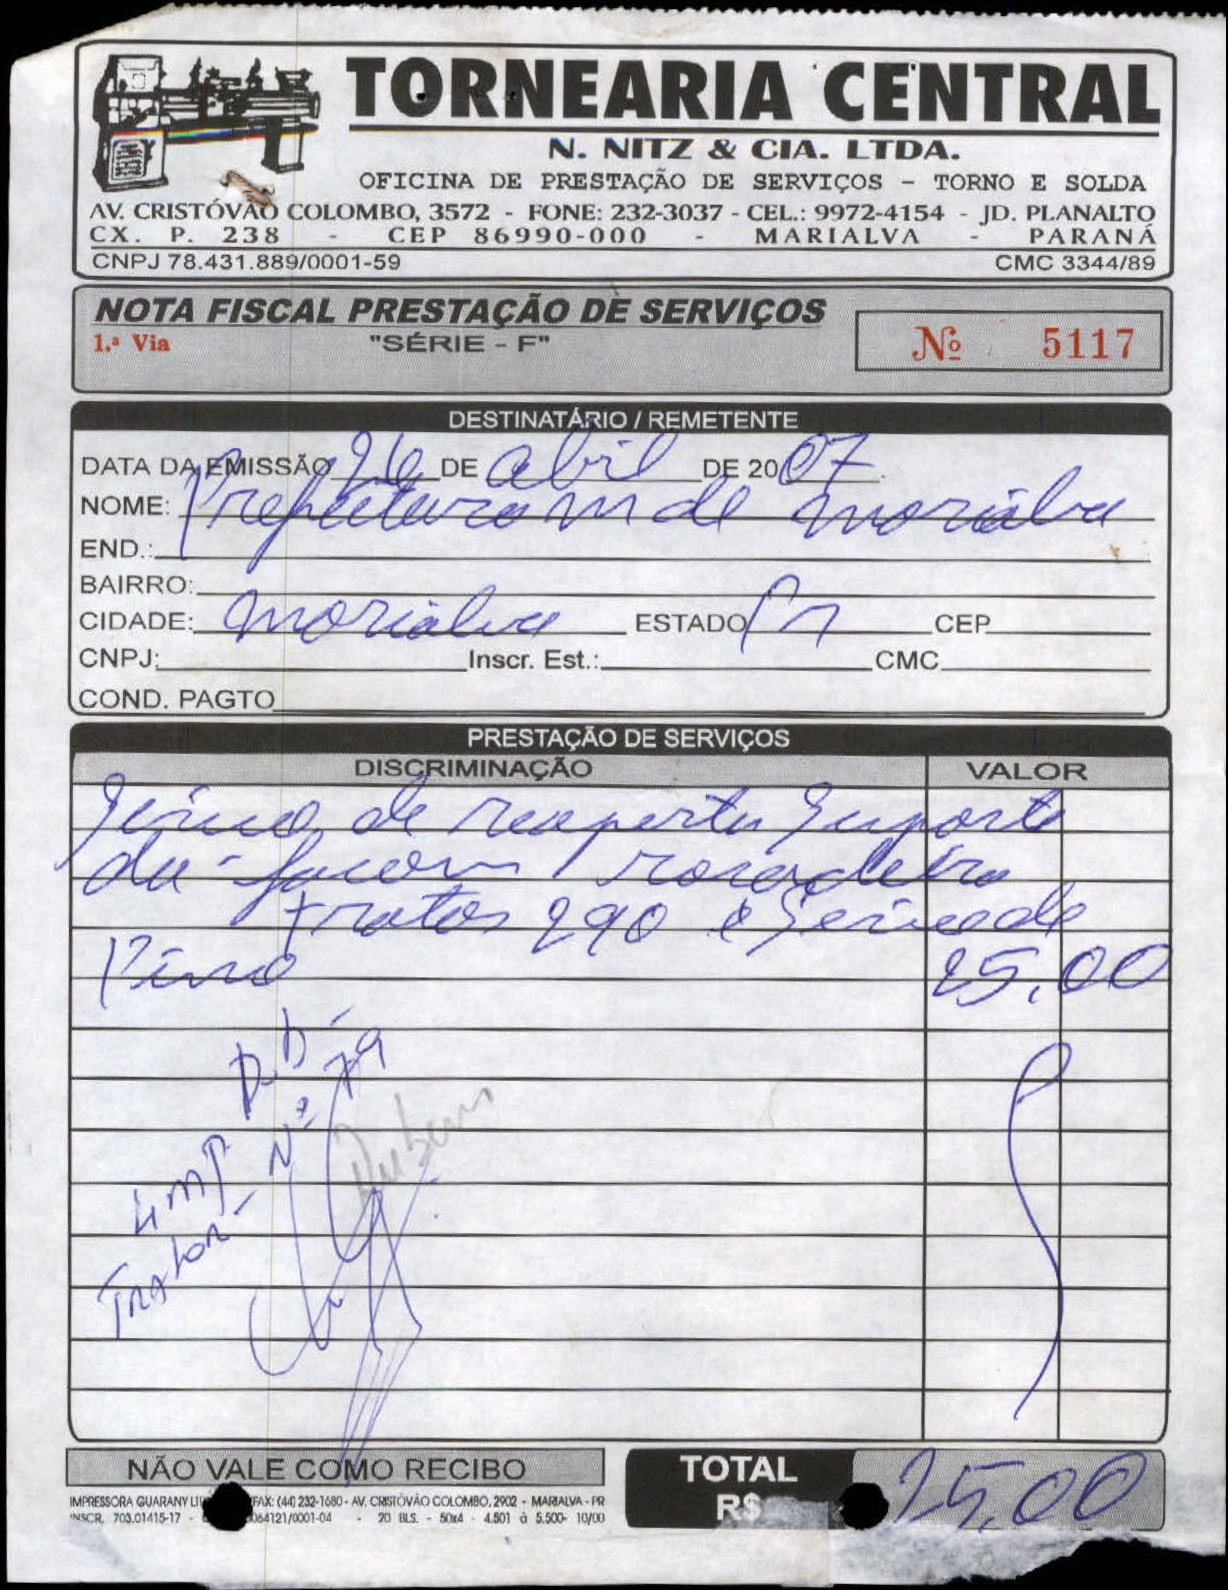 TORNEARIA CENTRAL
N. NITZ & CIA. LTDA.
OFICINA DE PRESTAÇÃO DE SERVIÇOS - TORNO E SOLDA
AV. CRISTÓVÃO COLOMBO, 3572 - FONE: 232-3037 - CEL.: 9972-4154 - JD. PLANALTO
CX. P. 238 - CEP 86990-000 - MARIALVA - PARANÁ
CNPJ 78.431.889/0001-59 CMC 3344/89
NOTA FISCAL PRESTAÇÃO DE SERVIÇOS
1.ª Via "SÉRIE - F" Nº 5117
DESTINATÁRIO / REMETENTE
DATA DA EMISSÃO 26 DE abril DE 2007
NOME: Prefeitura m de marialva
END.:
BAIRRO:
CIDADE: marialva ESTADO Pr CEP
CNPJ: Inscr. Est.: CMC
COND. PAGTO
PRESTAÇÃO DE SERVIÇOS
DISCRIMINAÇÃO VALOR
de suporte
da rosadeira
trator 290 e
Pino 25,00
Nº 79
Limp
Trator
Rubens
NÃO VALE COMO RECIBO
TOTAL R$ 25,00
IMPRESSORA GUARANY FAX: (44) 232-1680 - AV. CRISTÓVÃO COLOMBO, 2902 - MARIALVA - PR
INSCR. 703.01415-17 - 064121/0001-04 - 20 BLS. - 50x4 - 4.501 à 5.500 - 10/00